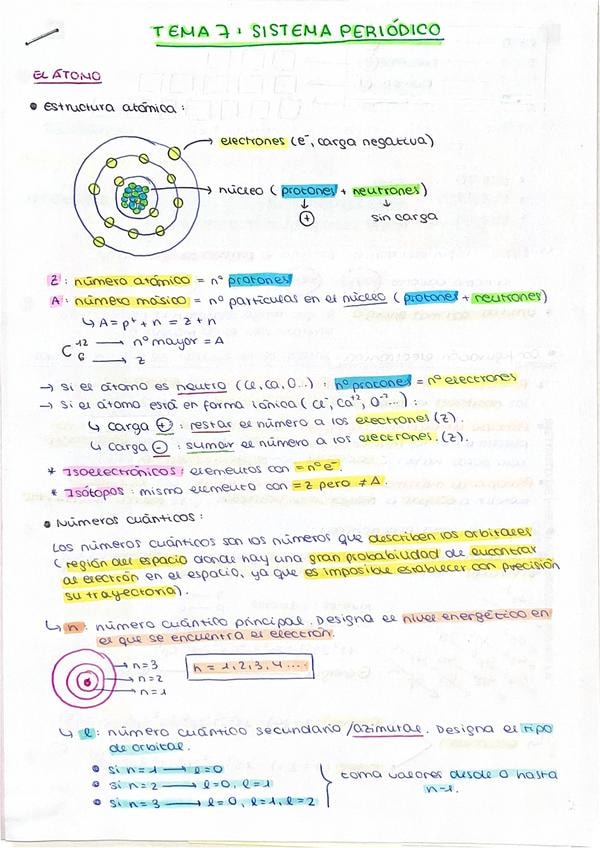 TEMA 7: SISTEMA PERIÓDICO
EL ÁTOMO
• Estructura atómica:
electrones (e⁻, carga negativa)
núcleo (protones + neutrones)
↓ ↓
+ sin carga
Z: número atómico = nº protones
A: número másico = nº partículas en el núcleo (protones + neutrones)
↳ A = p⁺ + n = Z + n
C 12 → nº mayor = A
6 → Z
→ Si el átomo es neutro (Cl, Ca, O...) : nº protones = nº electrones
→ Si el átomo está en forma iónica (Cl⁻, Ca⁺², O⁻²...) :
↳ carga + : restar el número a los electrones (Z).
↳ carga - : sumar el número a los electrones. (Z).
* Isoelectrónicos: elementos con = nº e⁻.
* Isótopos: mismo elemento con = Z pero ≠ A.
• Números cuánticos:
Los números cuánticos son los números que describen los orbitales
(región del espacio donde hay una gran probabilidad de encontrar
al electrón en el espacio, ya que es imposible establecer con precisión
su trayectoria).
↳ n: número cuántico principal. Designa el nivel energético en
el que se encuentra el electrón.
→ n=3
→ n=2
→ n=1
n = 1, 2, 3, 4 ....
↳ l: número cuántico secundario /azimutal. Designa el tipo
de orbital.
• si n=1 → l=0
• si n=2 → l=0, l=1
• si n=3 → l=0, l=1, l=2
toma valores desde 0 hasta
n-1.